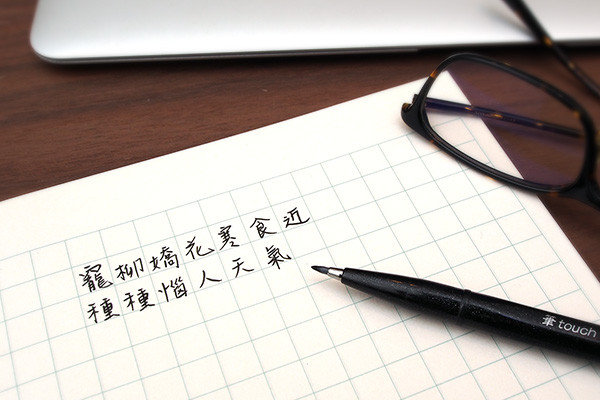 寵柳嬌花寒食近
種種惱人天氣
touch